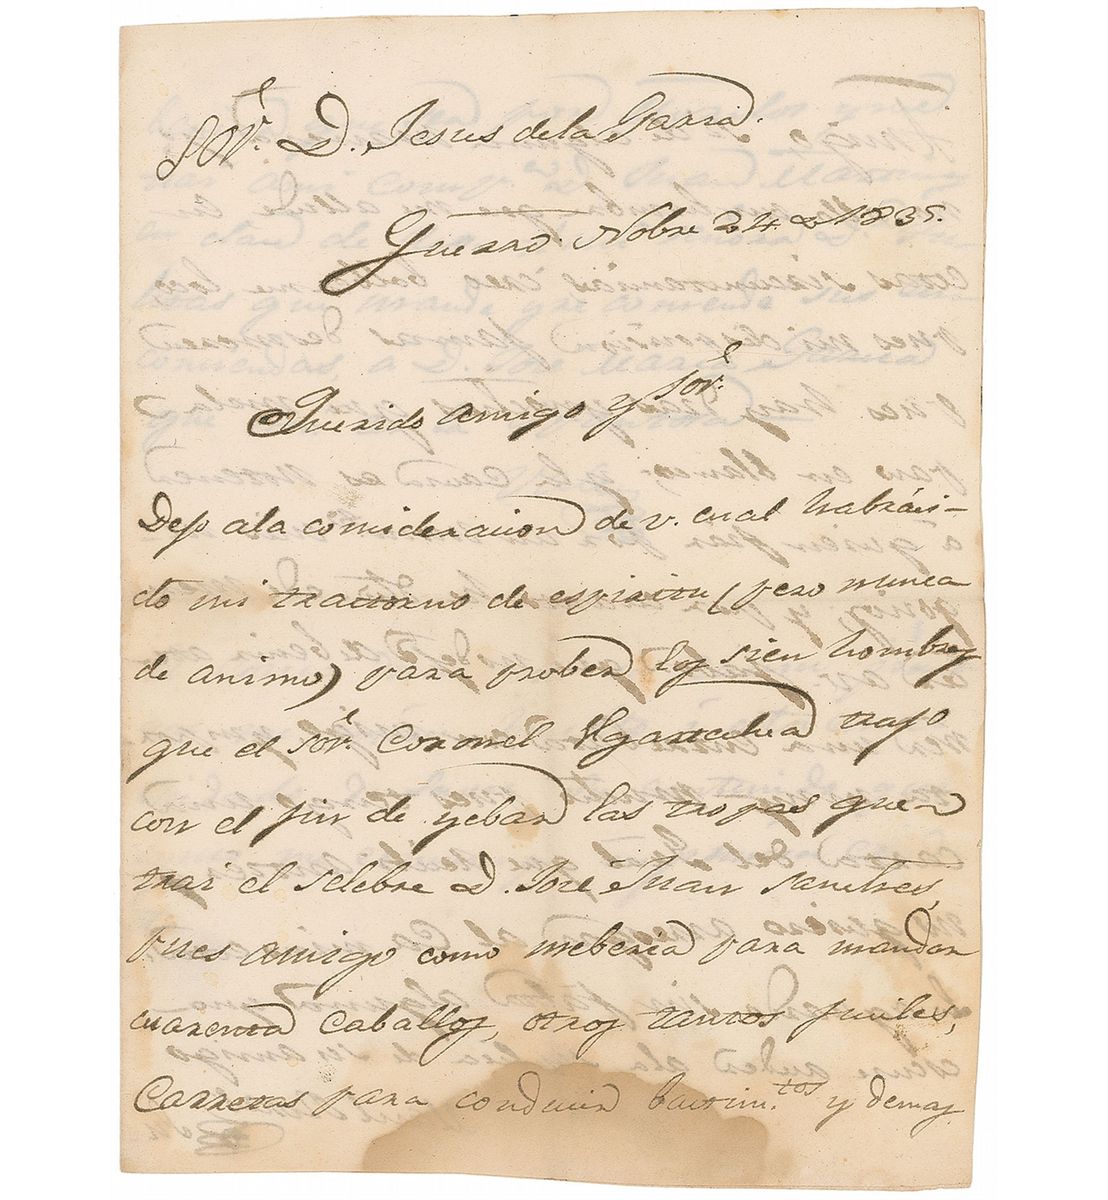 Sor. D. Jesus de la Garza.
Guerro. Nobre 24 de 1835.
Querido amigo y Sor.
Dejo ala concideracion de v. cual habrá si-
do mi trastorno de espiritu (pero nunca
de animo) para prober los sien hombres
que el Sor. Coronel Ugartchea trajo
con el fin de yebar las tropas que
trai el selebre D. José Juan Sanches,
pues amigo como meberia para mandar
cuarenta caballos, otros tantos fusiles,
Carretas para conducir bastim.tos y demas